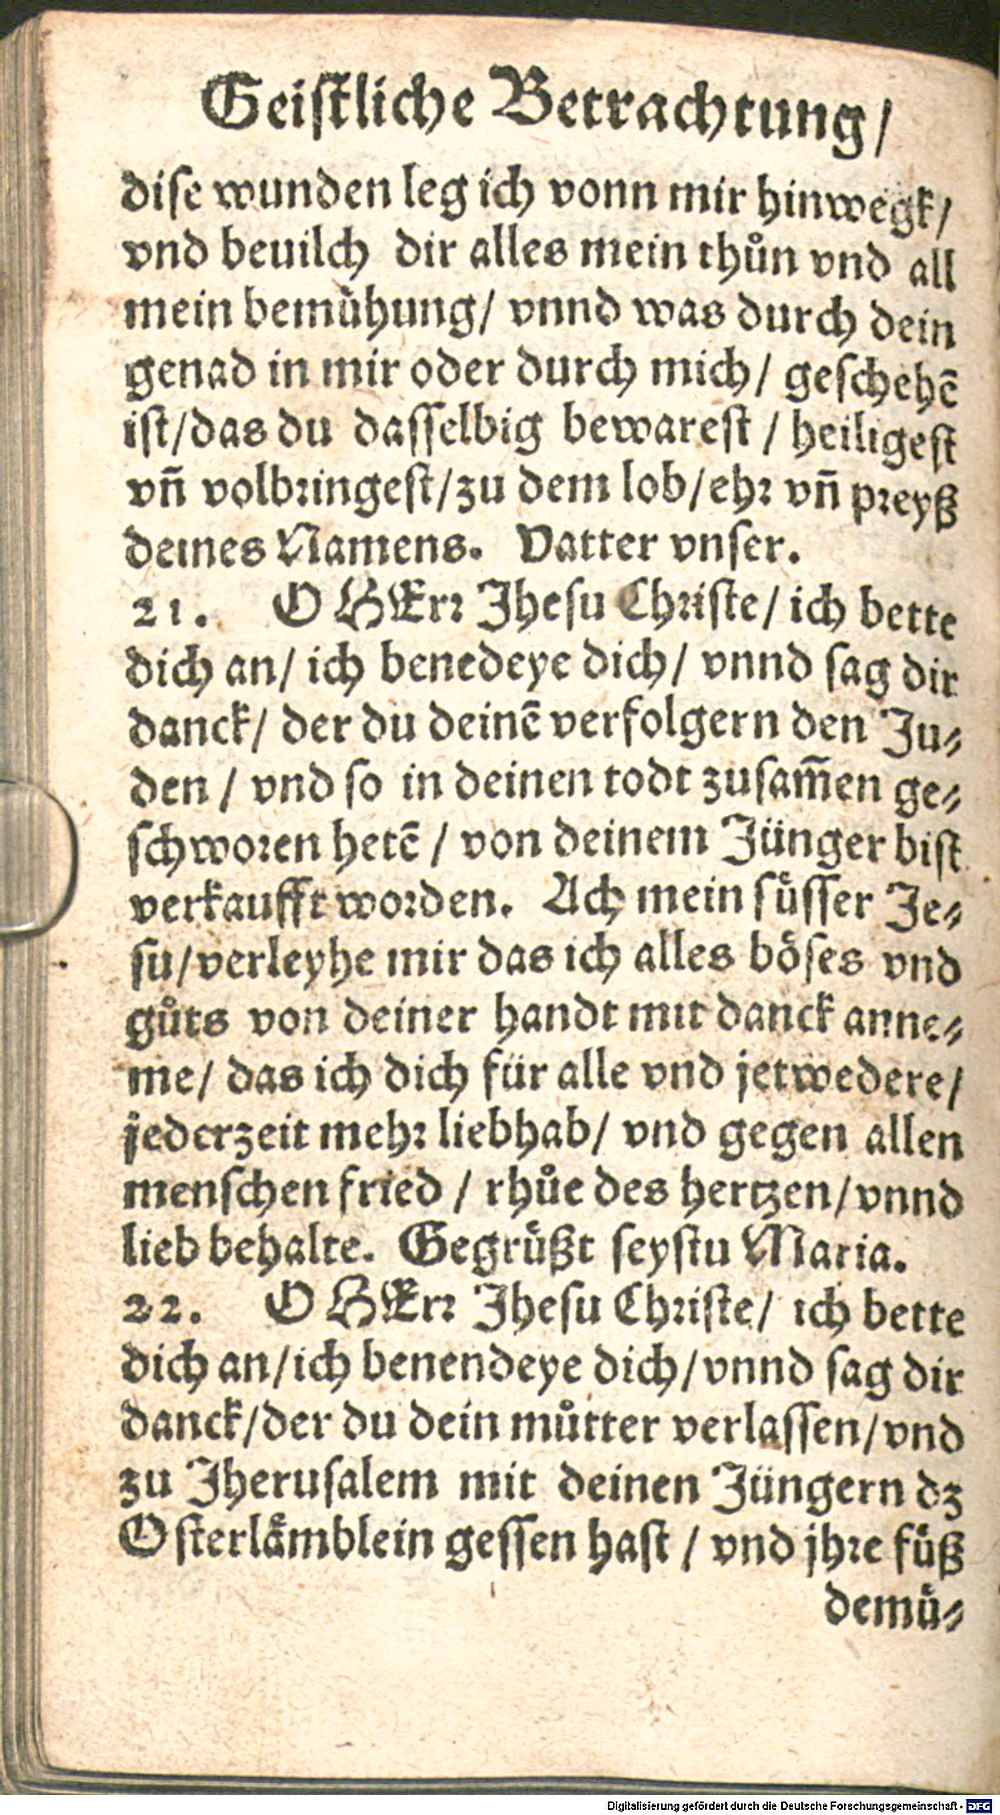 Geiſtliche Betrachtung/
diſe wunden leg ich vonn mir hinwegk/
vnd beuilch dir alles mein thůn vnd all
mein bemuͤhung/ vnnd was durch dein
genad in mir oder durch mich/ geſchehē
iſt/das du daſſelbig bewareſt / heiligeſt
vñ volbringeſt/zu dem lob/ehr vñ preyß
deines Namens. Vatter vnſer.
21. O HERr Jheſu Chriſte/ ich bette
dich an/ ich benedeye dich/ vnnd ſag dir
danck/ der du deinē verfolgern den Ju⸗
den / vnd ſo in deinen todt zuſam̄en ge⸗
ſchworen hetē / von deinem Jünger biſt
verkaufft worden. Ach mein ſuͤſſer Je⸗
ſu/verleyhe mir das ich alles boͤſes vnd
gůts von deiner handt mit danck anne⸗
me/ das ich dich für alle vnd jetwedere/
jederzeit mehr liebhab/ vnd gegen allen
menſchen fried / rhůe des hertzen/vnnd
lieb behalte. Gegruͤßt ſeyſtu Maria.
22. O HERr Jheſu Chriſte/ ich bette
dich an/ich benendeye dich/vnnd ſag dir
danck/der du dein můtter verlaſſen/vnd
zu Jheruſalem mit deinen Jüngern dz
Oſterlaͤmblein geſſen haſt / vnd jhre fuͤß
demuͤ⸗
Digitalisierung gefördert durch die Deutsche Forschungsgemeinschaft - DFG